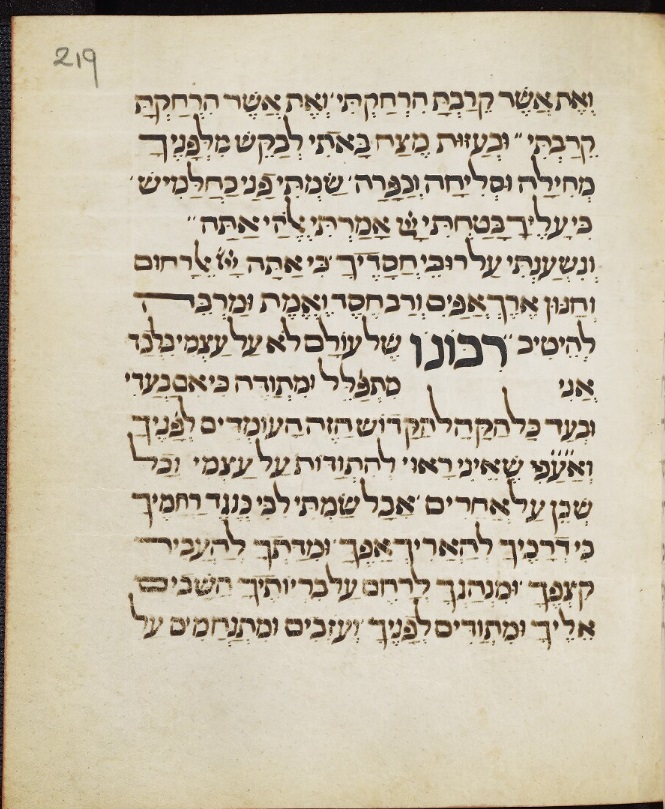 219
וְאֶת אֲשֶׁר קֵרַבְתָּ הִרְחַקְתִּי וְאֶת אֲשֶׁר הִרְחַקְתָּ
קֵרַבְתִּי וּבְעַזּוּת מֶצַח בָּאתִי לְבַקֵּשׁ מִלְּפָנֶיךָ
מְחִילָה וּסְלִיחָה וְכַפָּרָה שַׂמְתִּי פָנַי כַחַלָּמִישׁ
כִּי עָלֶיךָ בָּטַחְתִּי אָמַרְתִּי אֱלֹהַי אַתָּה
וְנִשְׁעַנְתִּי עַל רוֹב חֲסָדֶיךָ כִּי אַתָּה רַחוּם
וְחַנּוּן אֶרֶךְ אַפַּיִם וְרַב חֶסֶד וֶאֱמֶת וּמַרְבֶּה
לְהֵטִיב רבונו שֶׁל עוֹלָם לֹא עַל עַצְמִי בִּלְבַד
אֲנִי מִתְפַּלֵּל וּמִתְוַדֶּה כִּי אִם בַּעֲדִי
וּבְעַד כָּל הַקָּהָל הַקָּדוֹשׁ הַזֶּה הָעוֹמְדִים לְפָנֶיךָ
וְאַעַפִּ שֶׁאֵינִי רָאוּי לְהִתְוַדּוֹת עַל עַצְמִי וְכָל
שֶׁכֵּן עַל אֲחֵרִים אֲבָל שַׂמְתִּי לִבִּי כְנֶגֶד רַחֲמֶיךָ
כִּי דְרָכֶיךָ לְהַאֲרִיךְ אַפֶּךָ וּמִדָּתְךָ לְהַעֲבִיר
קִצְפֶּךָ וּמִנְהָגְךָ לְרַחֵם עַל בְּרִיּוֹתֶיךָ הַשָּׁבִים
אֵלֶיךָ וּמִתְוַדִּים לְפָנֶיךָ וְעֹזְבִים וּמִתְנַחֲמִים עַל